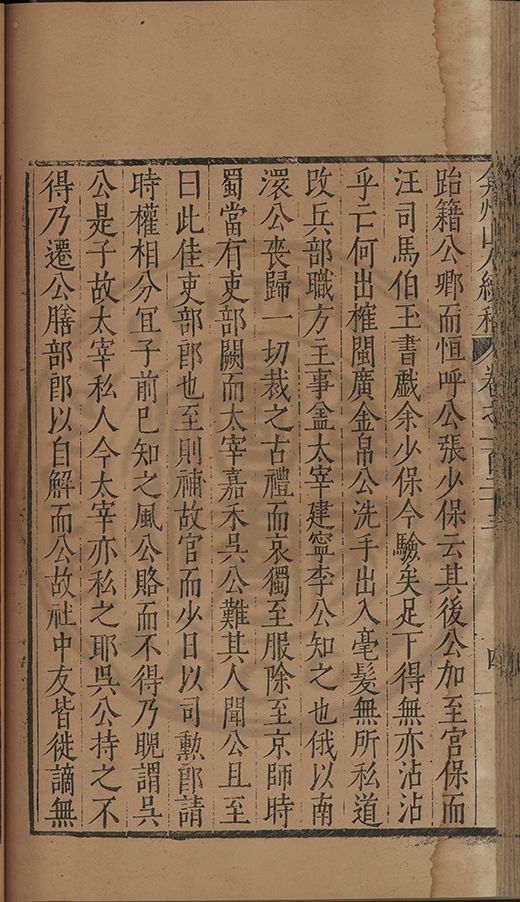 弇州山人續稿 卷之一百二十三 四
跆籍公卿而恒呼公張少保云其後公加至宮保而
汪司馬伯玉書戲余少保今驗矣足下得無亦沾沾
乎亡何出榷閩廣金帛公洗手出入毫髮無所私道
改兵部職方主事盖太宰建寧李公知之也俄以南
澴公喪歸一切裁之古禮而哀獨至服除至京師時
蜀當有吏部闕而太宰嘉禾吳公難其人聞公且至
曰此佳吏部郎也至則補故官而少日以司勳郎請
時權相分冝子前巳知之風公賂而不得乃睨謂吳
公是子故太宰私人今太宰亦私之耶吳公持之不
得乃遷公膳部郎以自解而公故社中友皆徙謫無